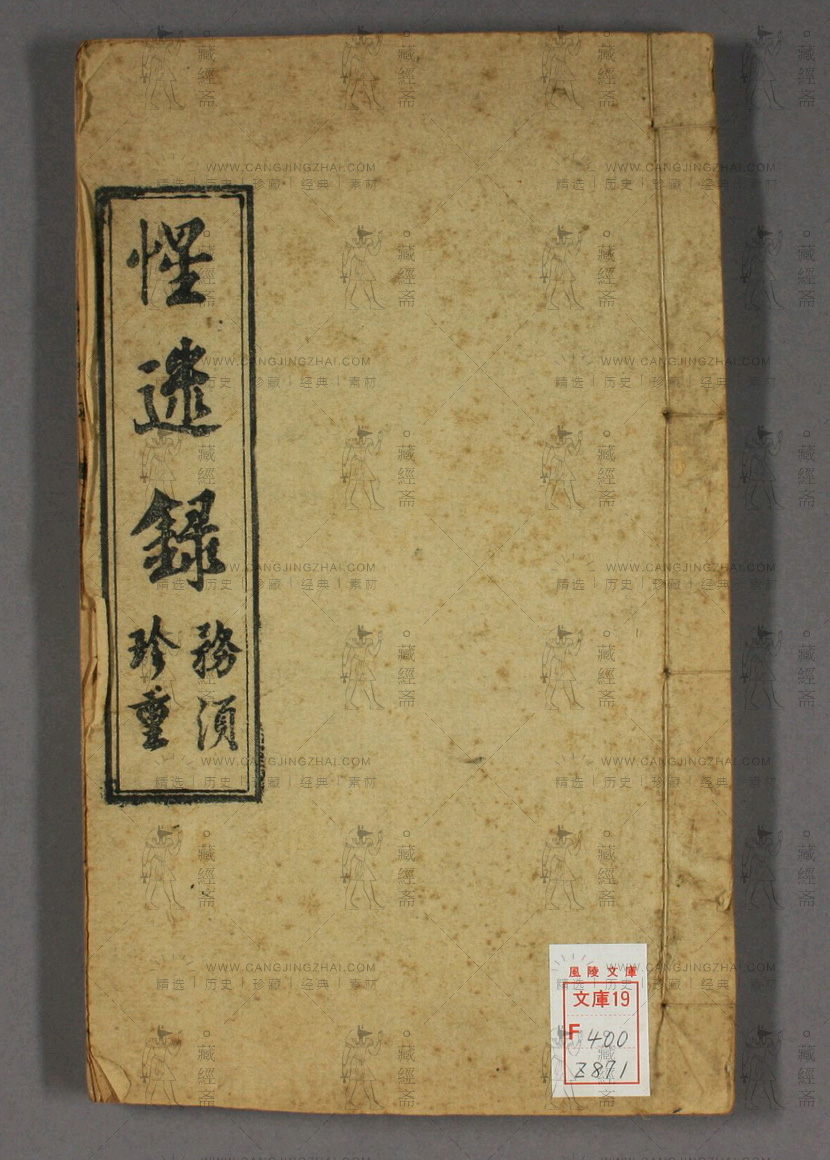 惺迷錄
務須
珍重
風陵文庫
文庫19
F 400
Z871
藏經斋
WWW.CANGJINGZHAI.COM
精选|历史|珍藏|经典|素材